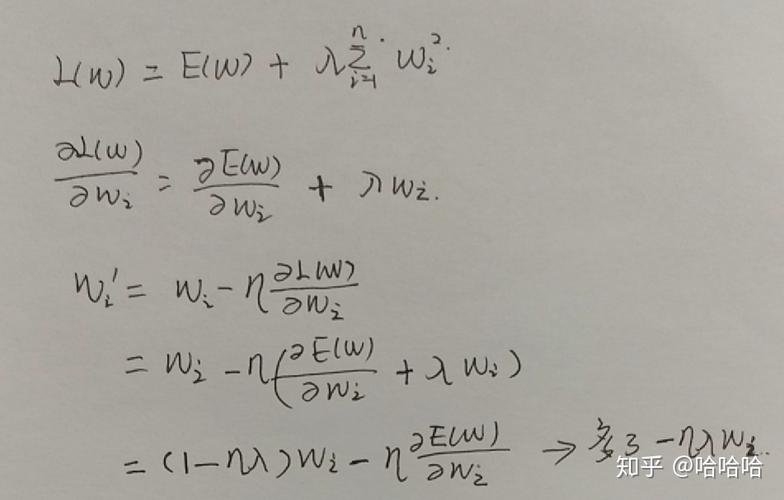 L(w) = E(w) + λ∑ᵢ₌₁ⁿ wᵢ².
∂L(w)/∂wᵢ = ∂E(w)/∂wᵢ + λwᵢ.
wᵢ' = wᵢ - η ∂L(w)/∂wᵢ
= wᵢ - η(∂E(w)/∂wᵢ + λwᵢ)
= (1-ηλ)wᵢ - η ∂E(w)/∂wᵢ → 多了 -ηλwᵢ.
知乎 @哈哈哈